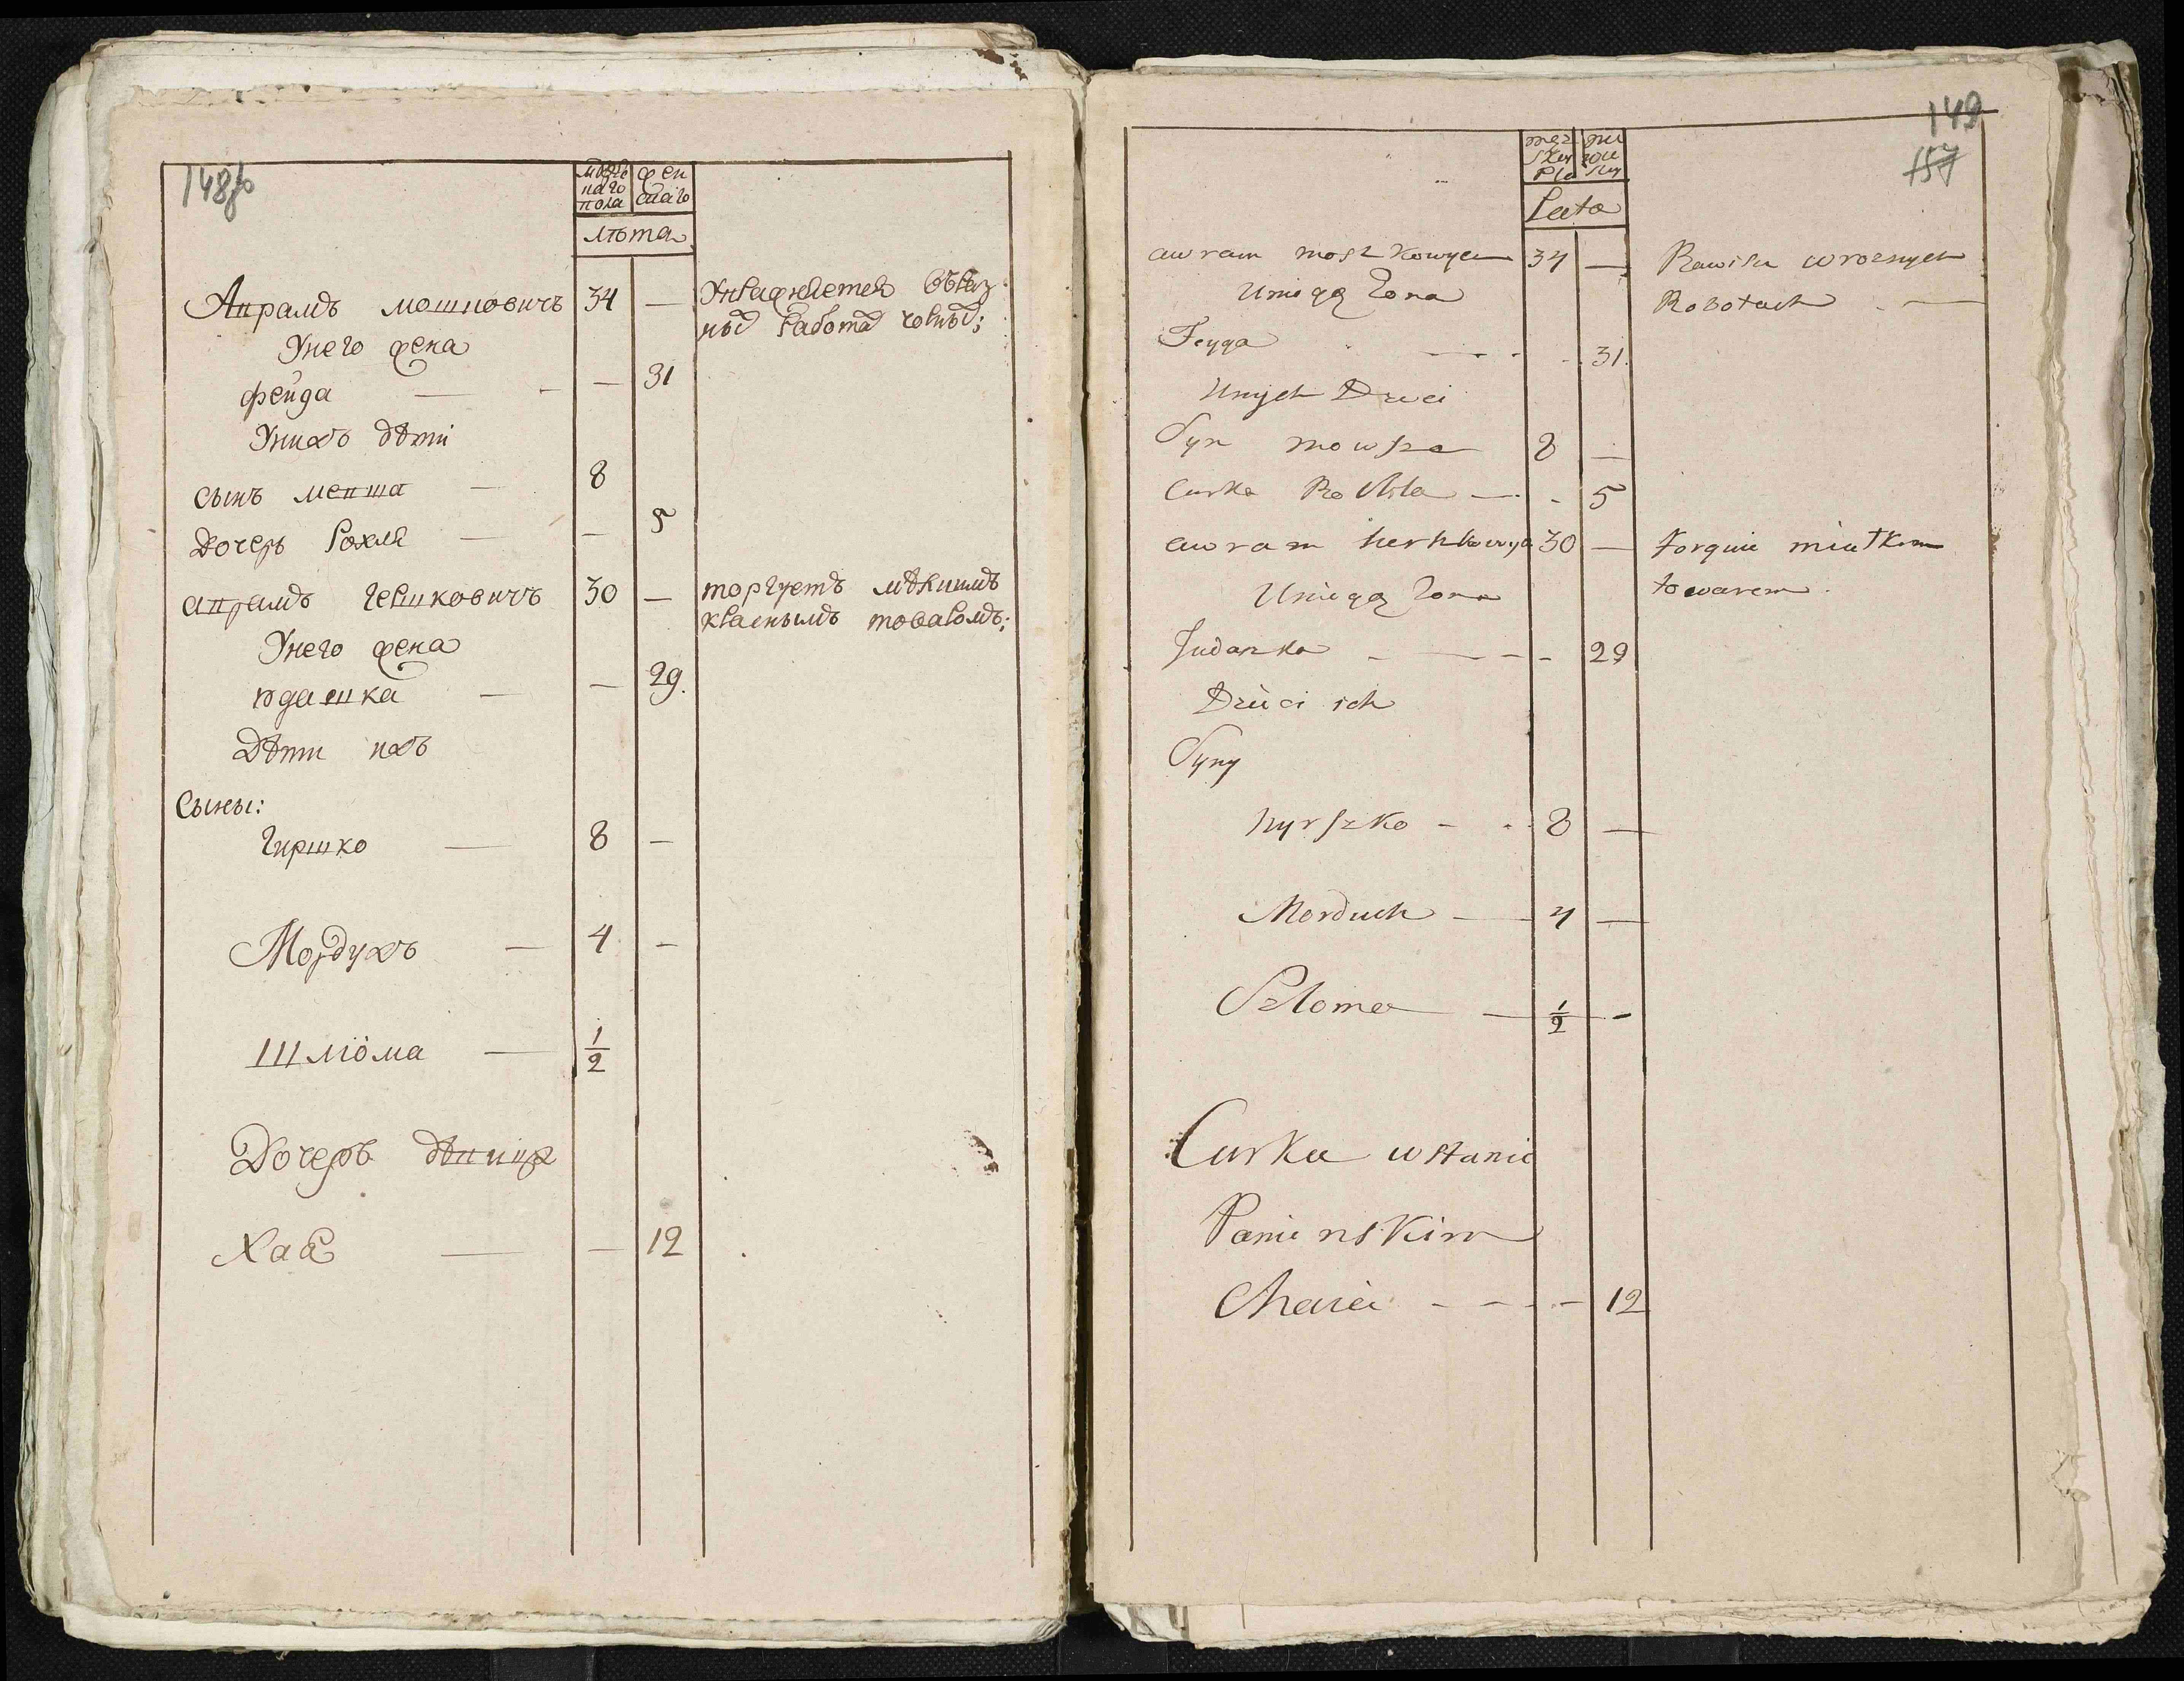 148об
муже женс
наго скаго
пола
лѣта
Аврамъ мошковичъ 34 — Упражняется въ раз
ныхъ работахъ
У него жена
фейга — — — 31
У нихъ дѣти
сынъ мевша — 8
Дочерь Рохля — — 5
аврамъ гершковичъ 30 — торгуетъ мѣлкимъ
краснымъ товаромъ;
У него жена
юдашка — — 29.
Дѣти ихъ
Сыны:
Гиршко — 8 —
Мордухъ — 4 —
Шлiома — 1/2
Дочерь дѣвица
Хая — — 12
149
157
męz żeń
skey skey
Płci
Leata
awram moszkowycz 34 — Bawisie wroznych
Robotach —
Uniego Zona
Feyga — — 31.
Unych Dzieci
Syn mowsza 8 —
Curka Rochla — - 5
awram herszkowycz 30 — Torguie miałkim
towarem.
Uniego Zona
Judaszka - — - - 29
Dzieci ich
Syny
hyrszko - - 8 —
Morduch — 4 —
Szloma — 1/2 -
Curka wstanie
Panienskim
Chaia - - - - 12